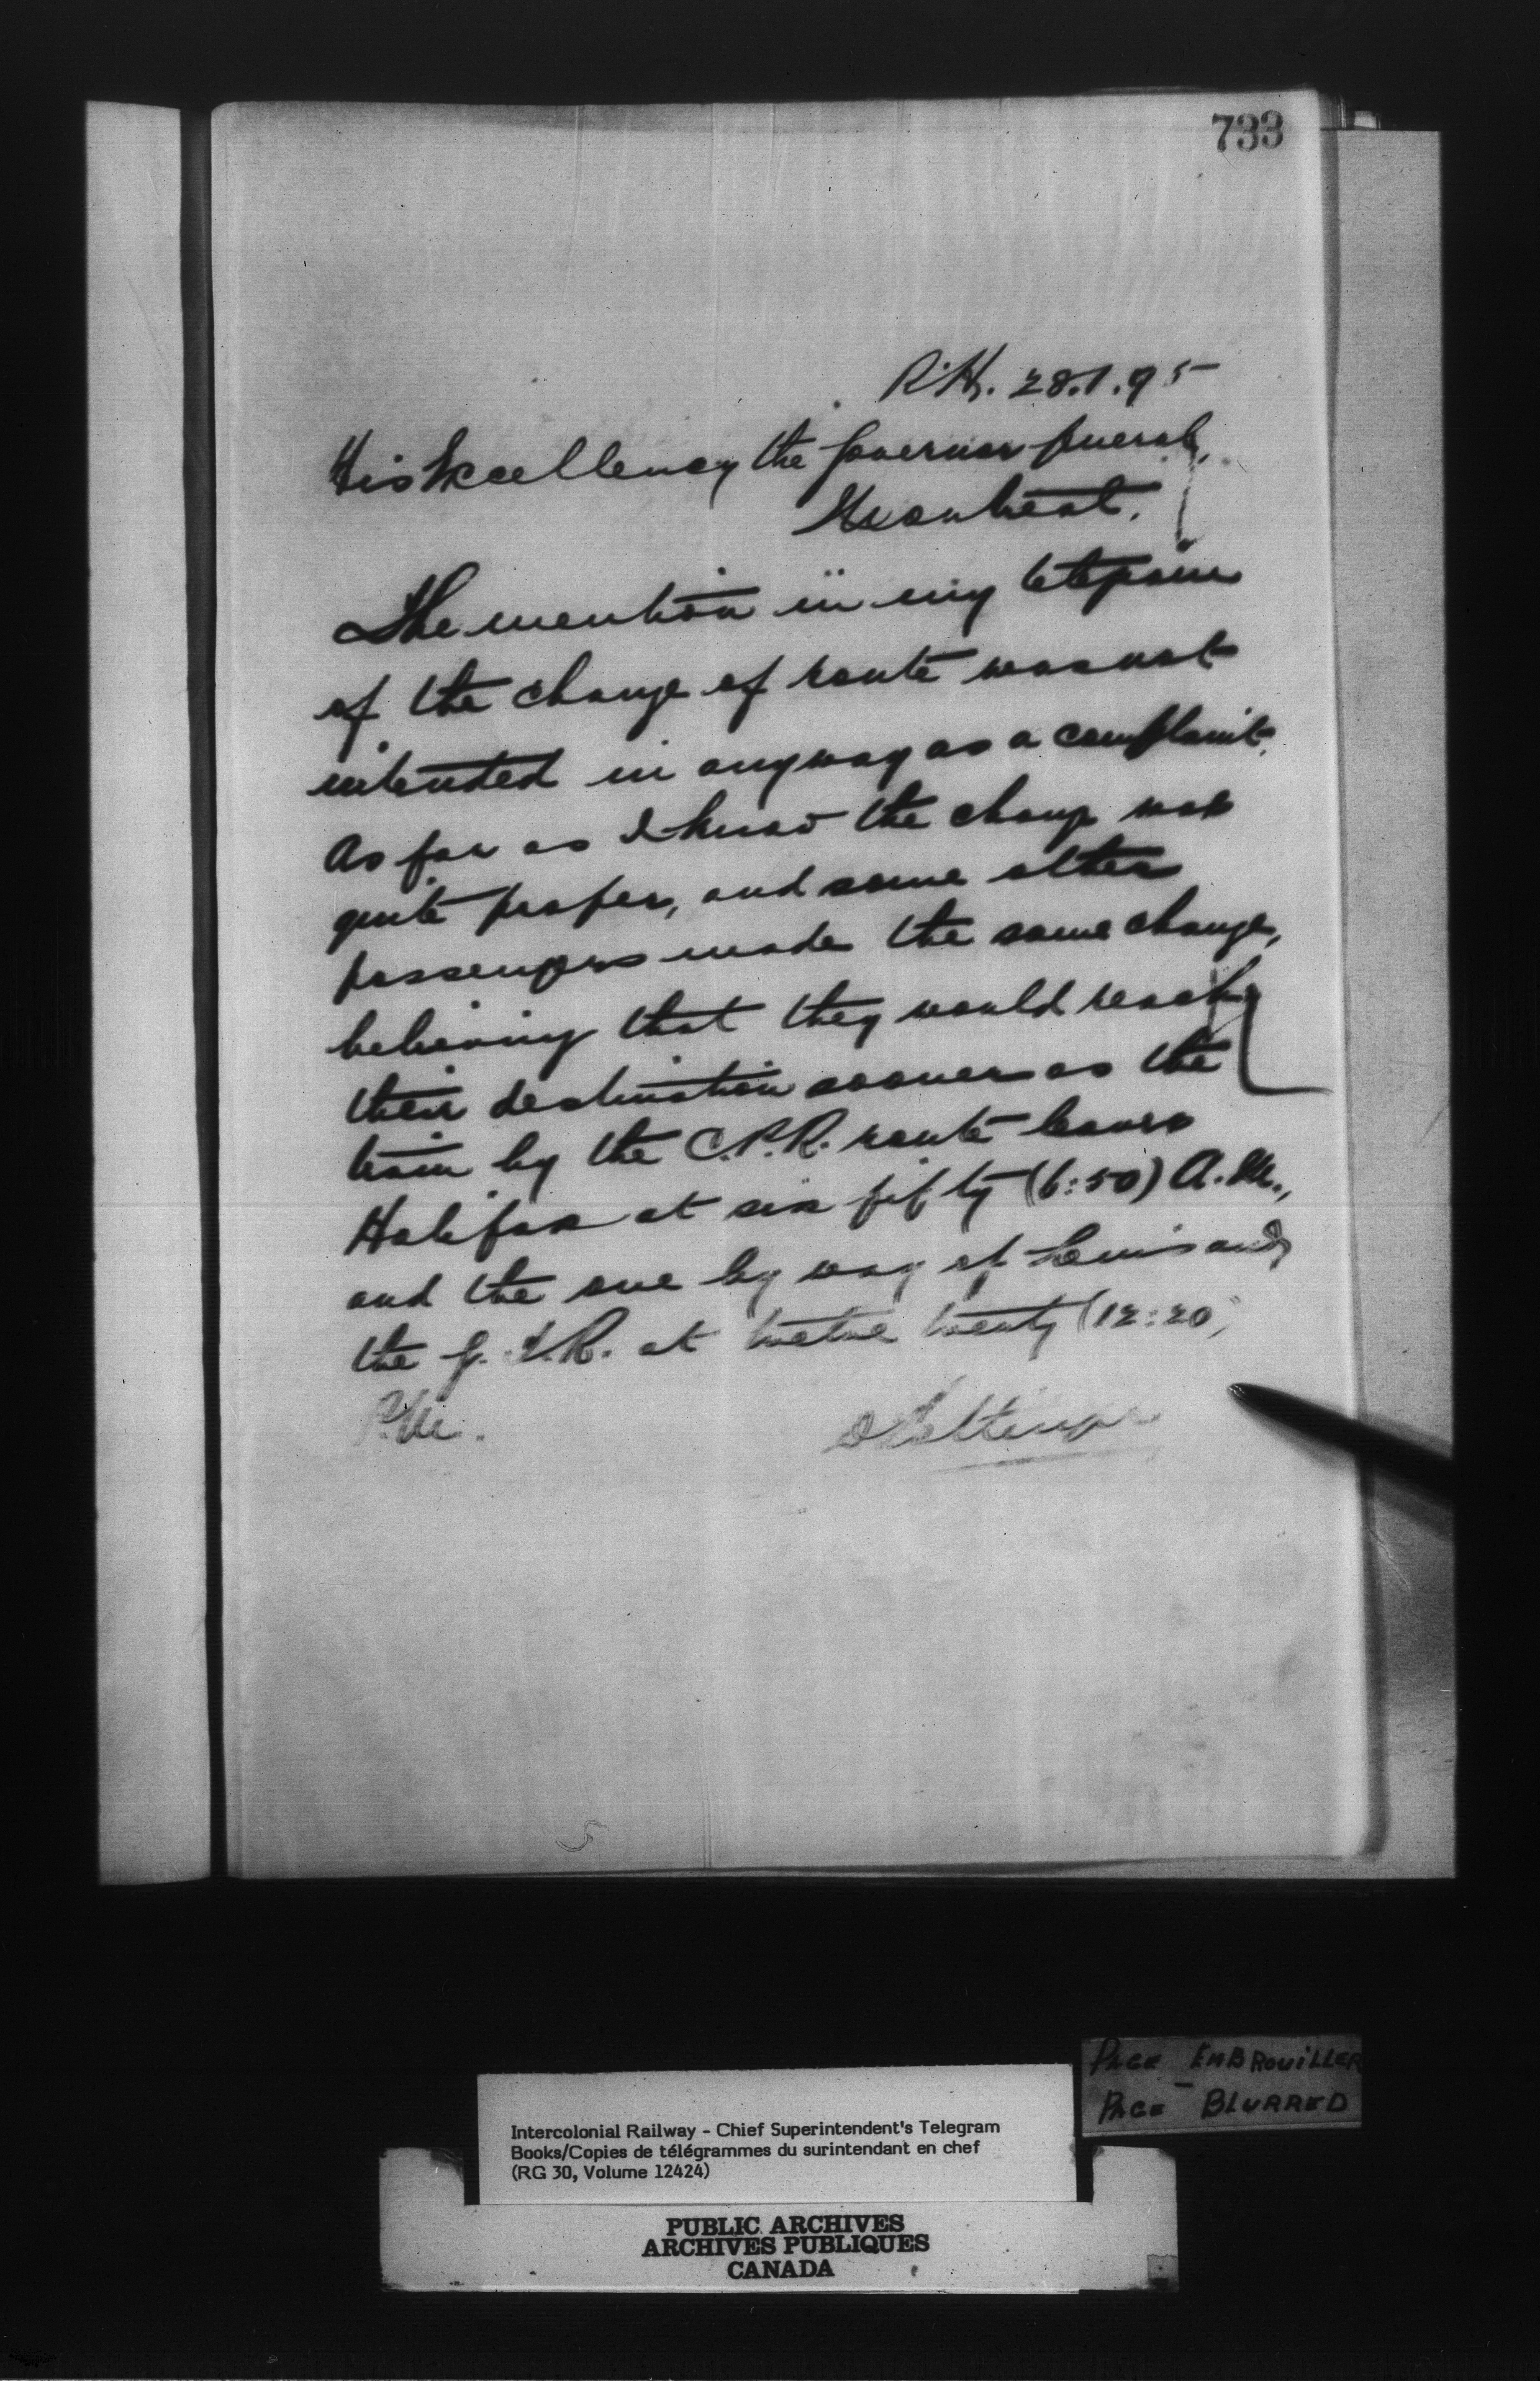 733
R'y. 28.1.95
His Excellency the Governor General,
Montreal.
The mention in my telegram
of the change of route was not
intended in anyway as a complaint.
As far as I know the change was
quite proper, and some other
passengers made the same change,
believing that they would reach
their destination sooner as the
train by the C.P.R. route leaves
Halifax at six fifty (6:50) A.M.,
and the one by way of Levis and
the G.T.R. at twelve twenty (12:20)
P.M.
D Pottinger
PAGE EMBROUILLER
PAGE BLURRED
Intercolonial Railway - Chief Superintendent's Telegram
Books/Copies de télégrammes du surintendant en chef
(RG 30, Volume 12424)
PUBLIC ARCHIVES
ARCHIVES PUBLIQUES
CANADA